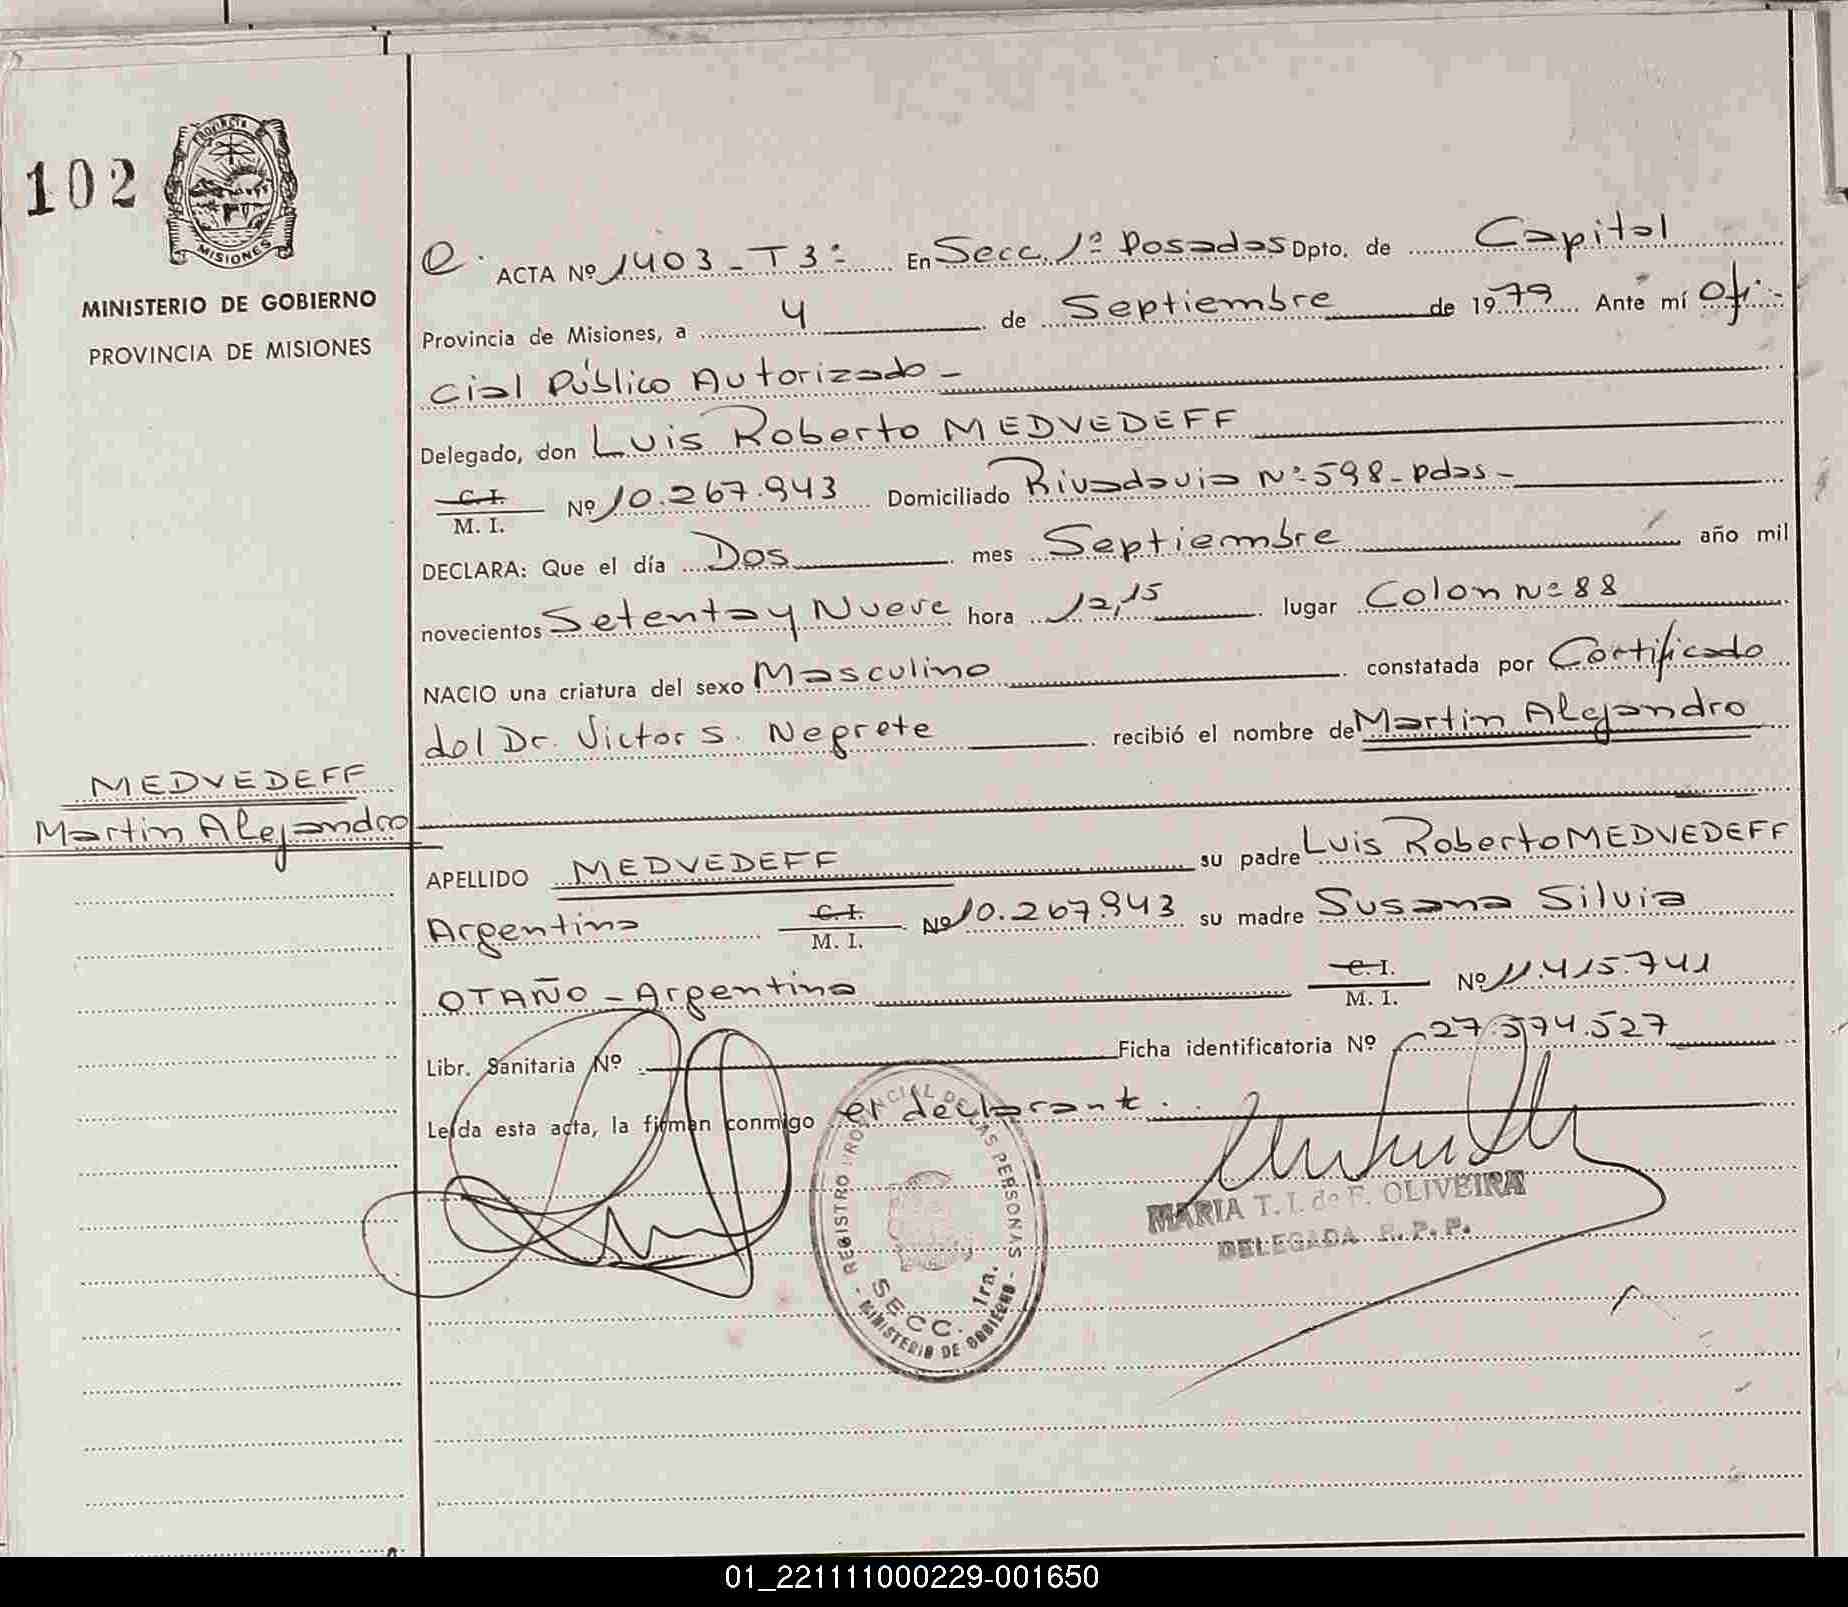 102
Provincia
MISIONES
MINISTERIO DE GOBIERNO
PROVINCIA DE MISIONES
MEDVEDEFF
Martin Alejandro
ACTA Nº 1403 - T 3º En Secc. 1º Posadas Dpto. de Capital
Provincia de Misiones, a 4 de Septiembre de 1979 Ante mí Ofi-
cial Público Autorizado -
Delegado, don Luis Roberto MEDVEDEFF
C. I.
M. I. Nº 10.267.943 Domiciliado Rivadavia Nº 598 - Pdas -
DECLARA: Que el día Dos mes Septiembre año mil
novecientos Setenta y Nueve hora 12,15 lugar Colon Nº 88
NACIO una criatura del sexo Masculino constatada por Certificado
del Dr. Victor S. Negrete recibió el nombre de Martin Alejandro
APELLIDO MEDVEDEFF su padre Luis Roberto MEDVEDEFF
Argentino C. I.
M. I. Nº 10.267.943 su madre Susana Silvia
OTAÑO - Argentina C. I.
M. I. Nº 11.415.741
Libr. Sanitaria Nº Ficha identificatoria Nº 27.574.527
Leída esta acta, la firman conmigo el declarante.
REGISTRO PROVINCIAL DE LAS PERSONAS
SECC. 1ra.
MINISTERIO DE GOBIERNO
MARIA T. I. de F. OLIVEIRA
DELEGADA R. P. P.
01_221111000229-001650